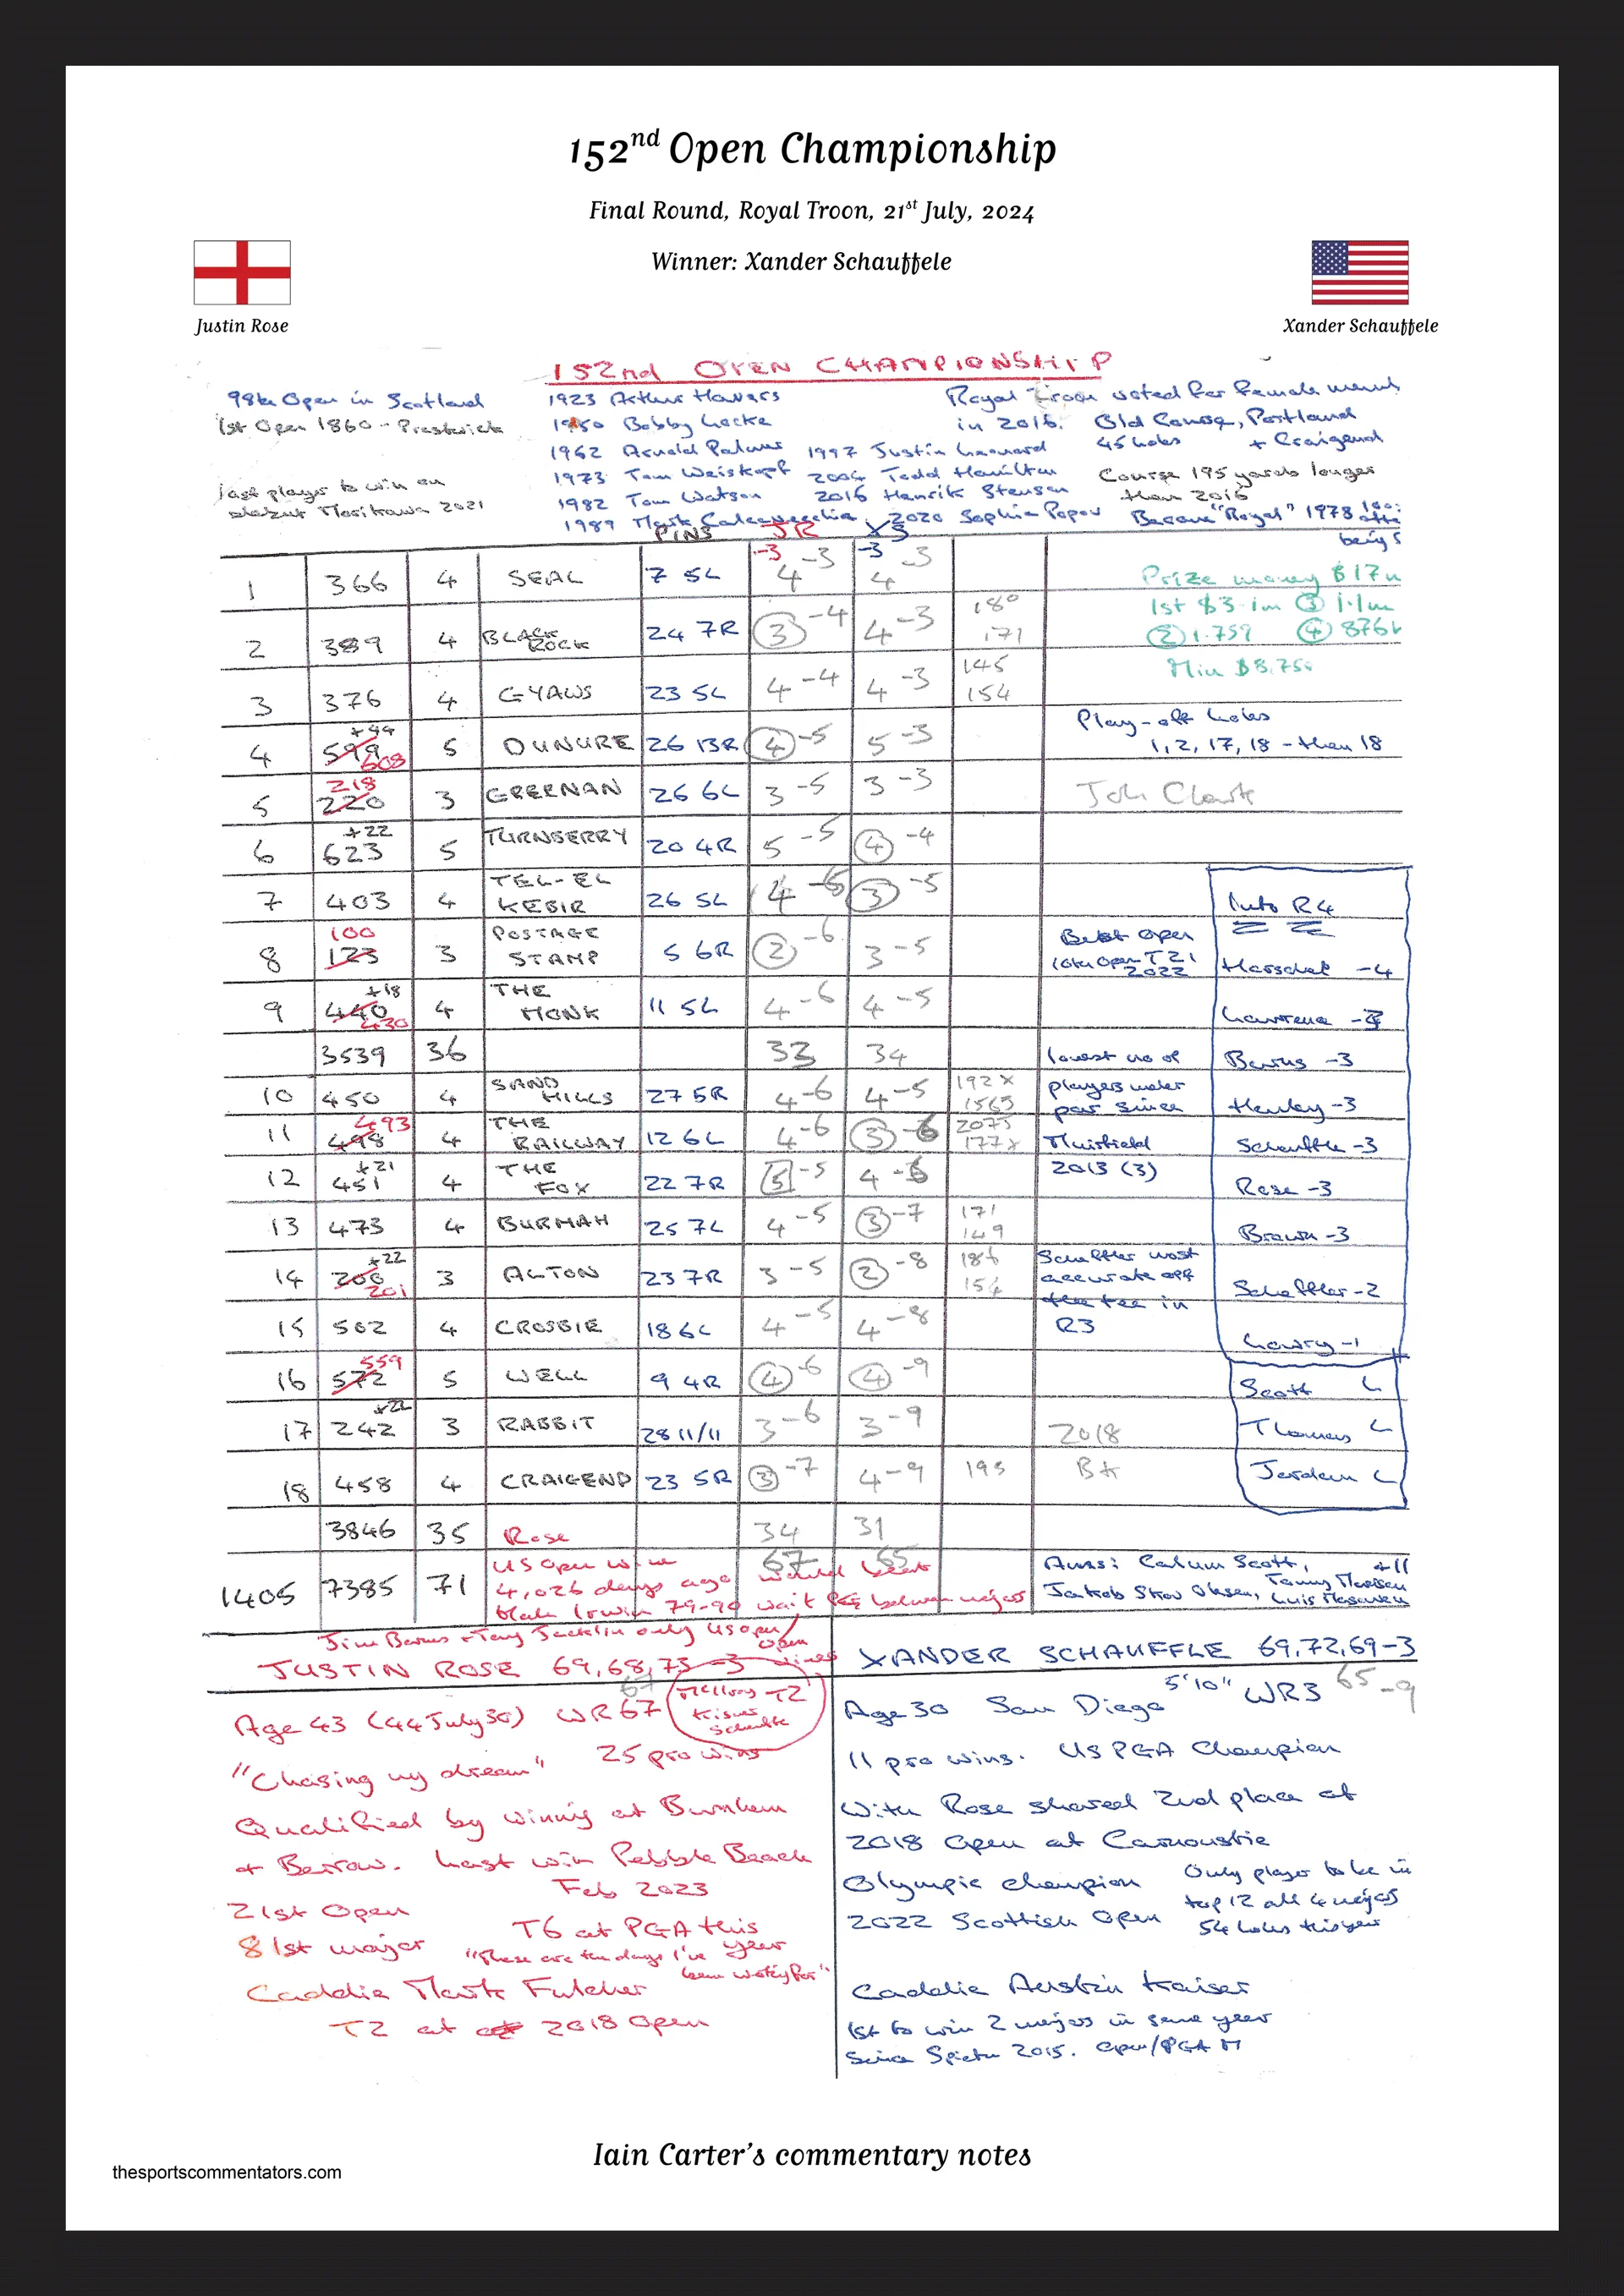 152nd Open Championship
Final Round, Royal Troon, 21st July, 2024
Winner: Xander Schauffele
Justin Rose
Xander Schauffele
152nd OPEN CHAMPIONSHIP
98th Open in Scotland
1st Open 1860 - Prestwick
last player to win on
debut Morikawa 2021
1923 Arthur Havers
1950 Bobby Locke
1962 Arnold Palmer 1997 Justin Leonard
1973 Tom Weiskopf 2004 Todd Hamilton
1982 Tom Watson 2016 Henrik Stenson
1989 Mark Calcavecchia 2020 Sophia Popov
Royal Troon voted for female memb
in 2016. Old Course, Portland
45 holes + Craigend
Course 195 yards longer
than 2016
Became "Royal" 1978 100
being
PINS JR XS
-3 -3
1 366 4 SEAL 7 5L 4 -3 4 -3
Prize money $17m
2 389 4 BLACK ROCK 24 7R 3 -4 4 -3 180 171
1st $3.1m 3 1.1m
2 1.759 4 876k
3 376 4 GYAWS 23 5L 4 -4 4 -3 145 154
Min $8.75
4 599 +44 608 5 DUNURE 26 13R 4 -5 5 -3
Play-off holes
1, 2, 17, 18 - then 18
5 220 218 3 GREENAN 26 6L 3 -5 3 -3
Clark
6 +22 623 5 TURNBERRY 20 4R 5 -5 4 -4
7 403 4 TEL-EL KEBIR 26 5L 4 3 -5
Into R4
8 123 100 3 POSTAGE STAMP 5 6R 2 -6 3 -5
Best Open
10th Open T21
2022
Horschel -4
9 440 +18 430 4 THE MONK 11 5L 4 -6 4 -5
Lawrence -3
3539 36 33 34
lowest no of
Burns -3
10 450 4 SAND HILLS 27 5R 4 -6 4 -5 192 x 1565
players under
par since
Henley -3
11 498 493 4 THE RAILWAY 12 6L 4 -6 3 -6 2075 177 x
Muirfield
Schauffle -3
12 +21 451 4 THE FOX 22 7R 5 -5 4
2013 (3)
Rose -3
13 473 4 BURMAH 25 7L 4 -5 3 -7 171 149
Brown -3
14 200 +22 201 3 AILTON 23 7R 3 -5 2 -8 186 154
Scheffler most
accurate off
the tee in
R3
Scheffler -2
15 502 4 CROSBIE 18 6L 4 -5 4 -8
Lowry -1
16 572 559 5 WELL 9 4R 4 -6 4 -9
Scott L
17 242 +22 3 RABBIT 28 11/11 3 -6 3 -9
2018
Thomas L
18 458 4 CRAIGEND 23 5R 3 -7 4 -9 195
Jordan L
3846 35 Rose 34 31
67 65
1405 7385 71
US Open win
4,026 days ago would beat
79-90 wait between majors
Ams: Calum Scott, +11
Jakob Skov Olesen, Tommy Morrison
Luis Masaveu
Jim Barnes + Tony Jacklin only US Open/
Open
JUSTIN ROSE 69, 68, 73 -3
67
XANDER SCHAUFFLE 69, 72, 69 -3
65 -9
Age 43 (44 July 30) WR67
McIlroy T2
Kisner
Schauffle
25 pro wins
"Chasing my dream"
Qualified by winning at Burnham
+ Berrow. Last win Pebble Beach
Feb 2023
21st Open
81st major
T6 at PGA this
year
"These are the days I've
been working for"
Caddie Mark Fulcher
T2 at 2018 Open
Age 30 San Diego 5'10" WR3
11 pro wins. US PGA Champion
With Rose shared 2nd place at
2018 Open at Carnoustie
Olympic champion
2022 Scottish Open
Only player to be in
top 12 all 4 majors
54 holes this year
Caddie Austin Kaiser
1st to win 2 majors in same year
since Spieth 2015. Open/PGA M
Iain Carter's commentary notes
thesportscommentators.com